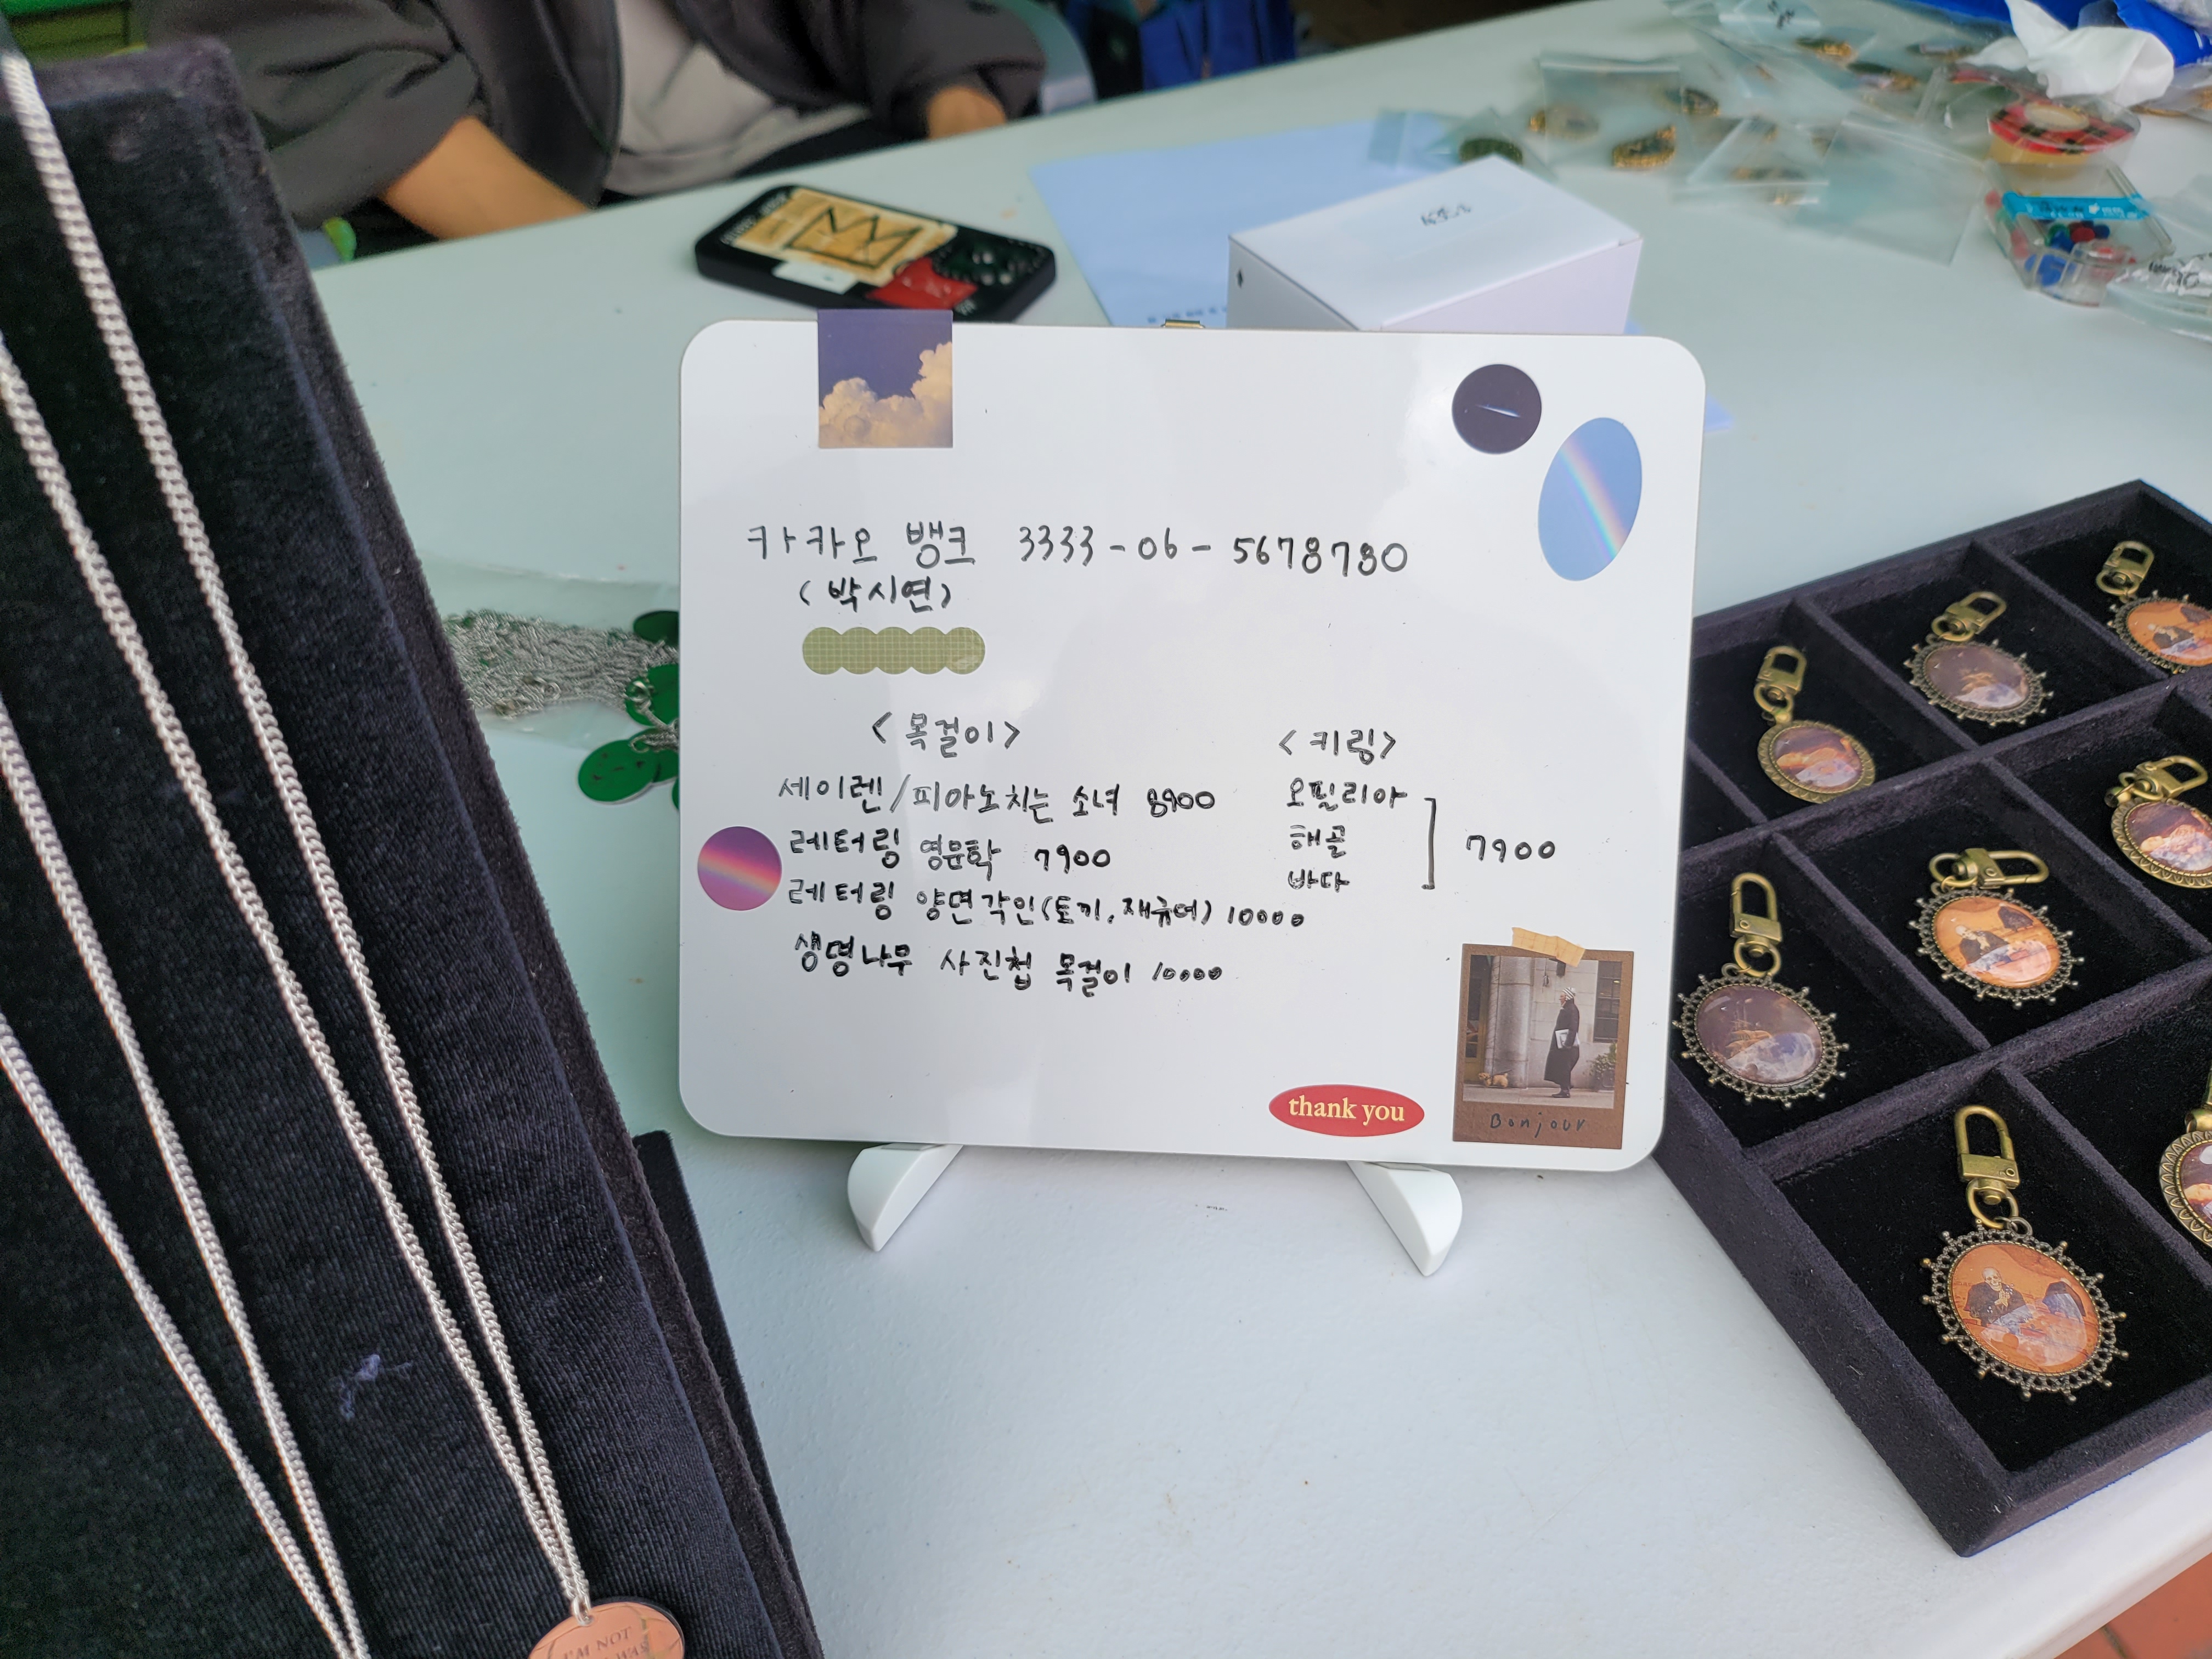 카카오 뱅크 3333-06-5678780
(박시연)
<목걸이>
세이렌/피아노치는 소녀 8900
레터링 영문학 7900
레터링 양면각인(토끼, 재규어) 10000
생명나무 사진첩 목걸이 10000
<키링>
오필리아
해골
바다
7900
thank you
Bonjour
I'M NOT
WAS